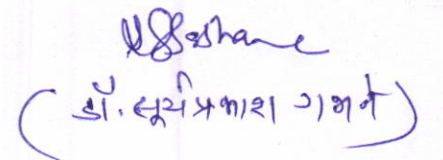 (डॉ. सूर्यप्रकाश गभने)